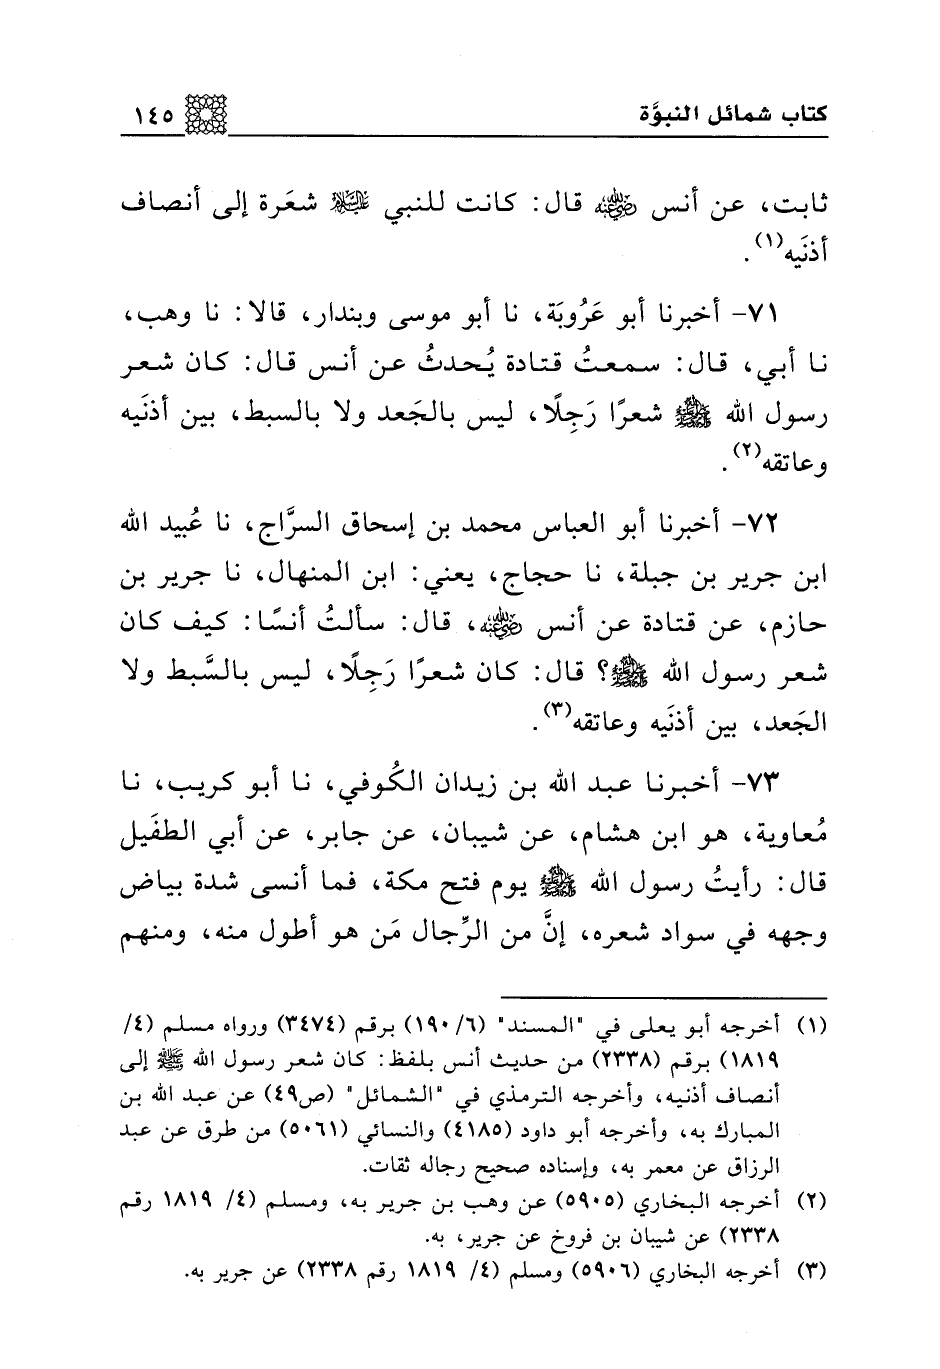 كتاب شمائل النبوَّة ١٤٥
ثابت، عن أنس رضي الله عنه قال: كانت للنبي عليه السلام شعَرة إلى أنصاف
أذنَيه(١).
٧١- أخبرنا أبو عَرُوبَة، نا أبو موسى وبندار، قالا: نا وهب،
نا أبي، قال: سمعتُ قتادة يُحدثُ عن أنس قال: كان شعر
رسول الله ﷺ شعرًا رَجِلًا، ليس بالجَعد ولا بالسبط، بين أذنَيه
وعاتقه(٢).
٧٢- أخبرنا أبو العباس محمد بن إسحاق السرَّاج، نا عُبيد الله
ابن جرير بن جبلة، نا حجاج، يعني: ابن المنهال، نا جرير بن
حازم، عن قتادة عن أنس رضي الله عنه، قال: سألتُ أنسًا: كيف كان
شعر رسول الله ﷺ؟ قال: كان شعرًا رَجِلًا، ليس بالسَّبط ولا
الجَعد، بين أذنَيه وعاتقه(٣).
٧٣- أخبرنا عبد الله بن زيدان الكُوفي، نا أبو كريب، نا
مُعاوية، هو ابن هشام، عن شيبان، عن جابر، عن أبي الطفَيل
قال: رأيتُ رسول الله ﷺ يوم فتح مكة، فما أنسى شدة بياض
وجهه في سواد شعره، إنَّ من الرِّجال مَن هو أطول منه، ومنهم
(١) أخرجه أبو يعلى في "المسند" (٦/ ١٩٠) برقم (٣٤٧٤) ورواه مسلم (٤/
١٨١٩) برقم (٢٣٣٨) من حديث أنس بلفظ: كان شعر رسول الله ﷺ إلى
أنصاف أذنيه، وأخرجه الترمذي في "الشمائل" (ص٤٩) عن عبد الله بن
المبارك به، وأخرجه أبو داود (٤١٨٥) والنسائي (٥٠٦١) من طرق عن عبد
الرزاق عن معمر به، وإسناده صحيح رجاله ثقات.
(٢) أخرجه البخاري (٥٩٠٥) عن وهب بن جرير به، ومسلم (٤/ ١٨١٩ رقم
٢٣٣٨) عن شيبان بن فروخ عن جرير، به.
(٣) أخرجه البخاري (٥٩٠٦) ومسلم (٤/ ١٨١٩ رقم ٢٣٣٨) عن جرير به.